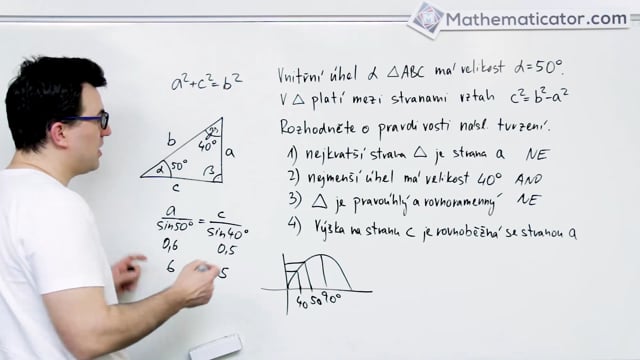 Mathematicator.com
a²+c²=b²
Vnitřní úhel α △ABC má velikost α=50°.
V △ platí mezi stranami vztah c²=b²-a²
Rozhodněte o pravdivosti násl. tvrzení.
1) nejkratší strana △ je strana a NE
2) nejmenší úhel má velikost 40° ANO
3) △ je pravoúhlý a rovnoramenný NE
4) výška na stranu c je rovnoběžná se stranou a
b 40° a
α 50° β
c
a/sin50° = c/sin40°
0,6 0,5
6 5
40 50 90°